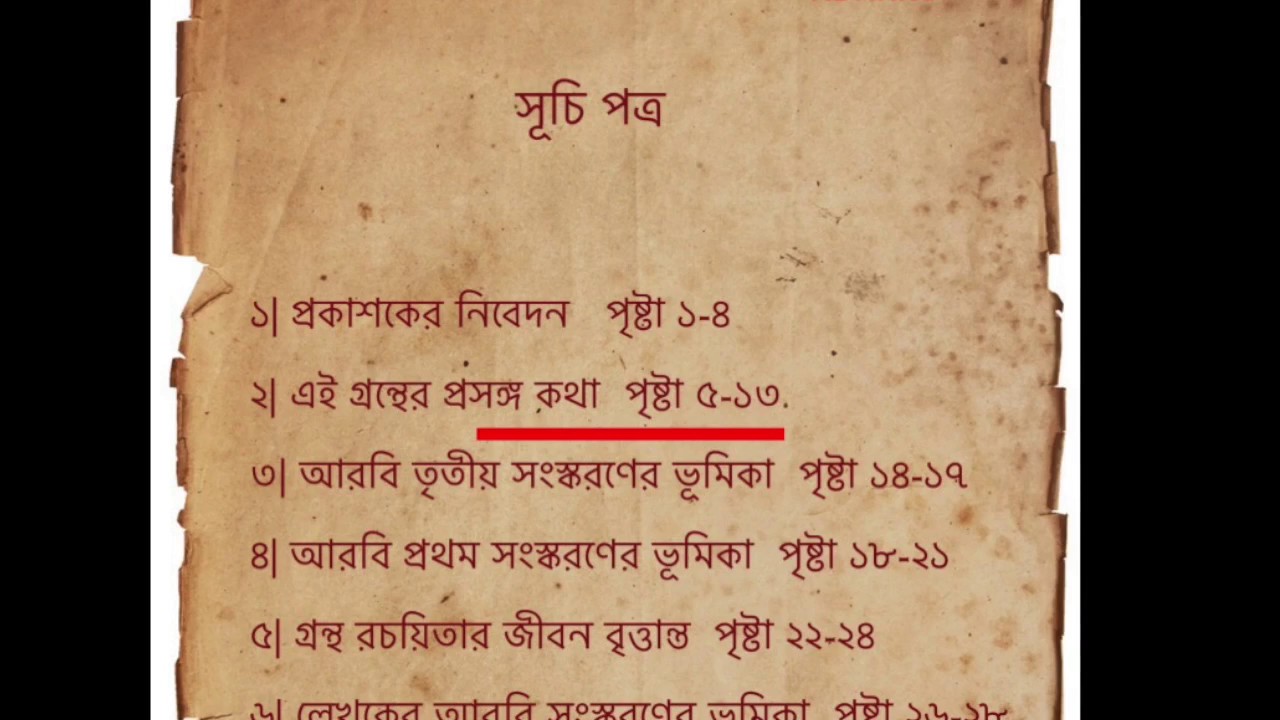 সূচি পত্র
১| প্রকাশকের নিবেদন পৃষ্টা ১-৪
২| এই গ্রন্থের প্রসঙ্গ কথা পৃষ্টা ৫-১৩
৩| আরবি তৃতীয় সংস্করণের ভূমিকা পৃষ্টা ১৪-১৭
৪| আরবি প্রথম সংস্করণের ভূমিকা পৃষ্টা ১৮-২১
৫| গ্রন্থ রচয়িতার জীবন বৃত্তান্ত পৃষ্টা ২২-২৪
৬| লেখকের আরবি সংস্করণের ভূমিকা পৃষ্টা ২৬-২৮